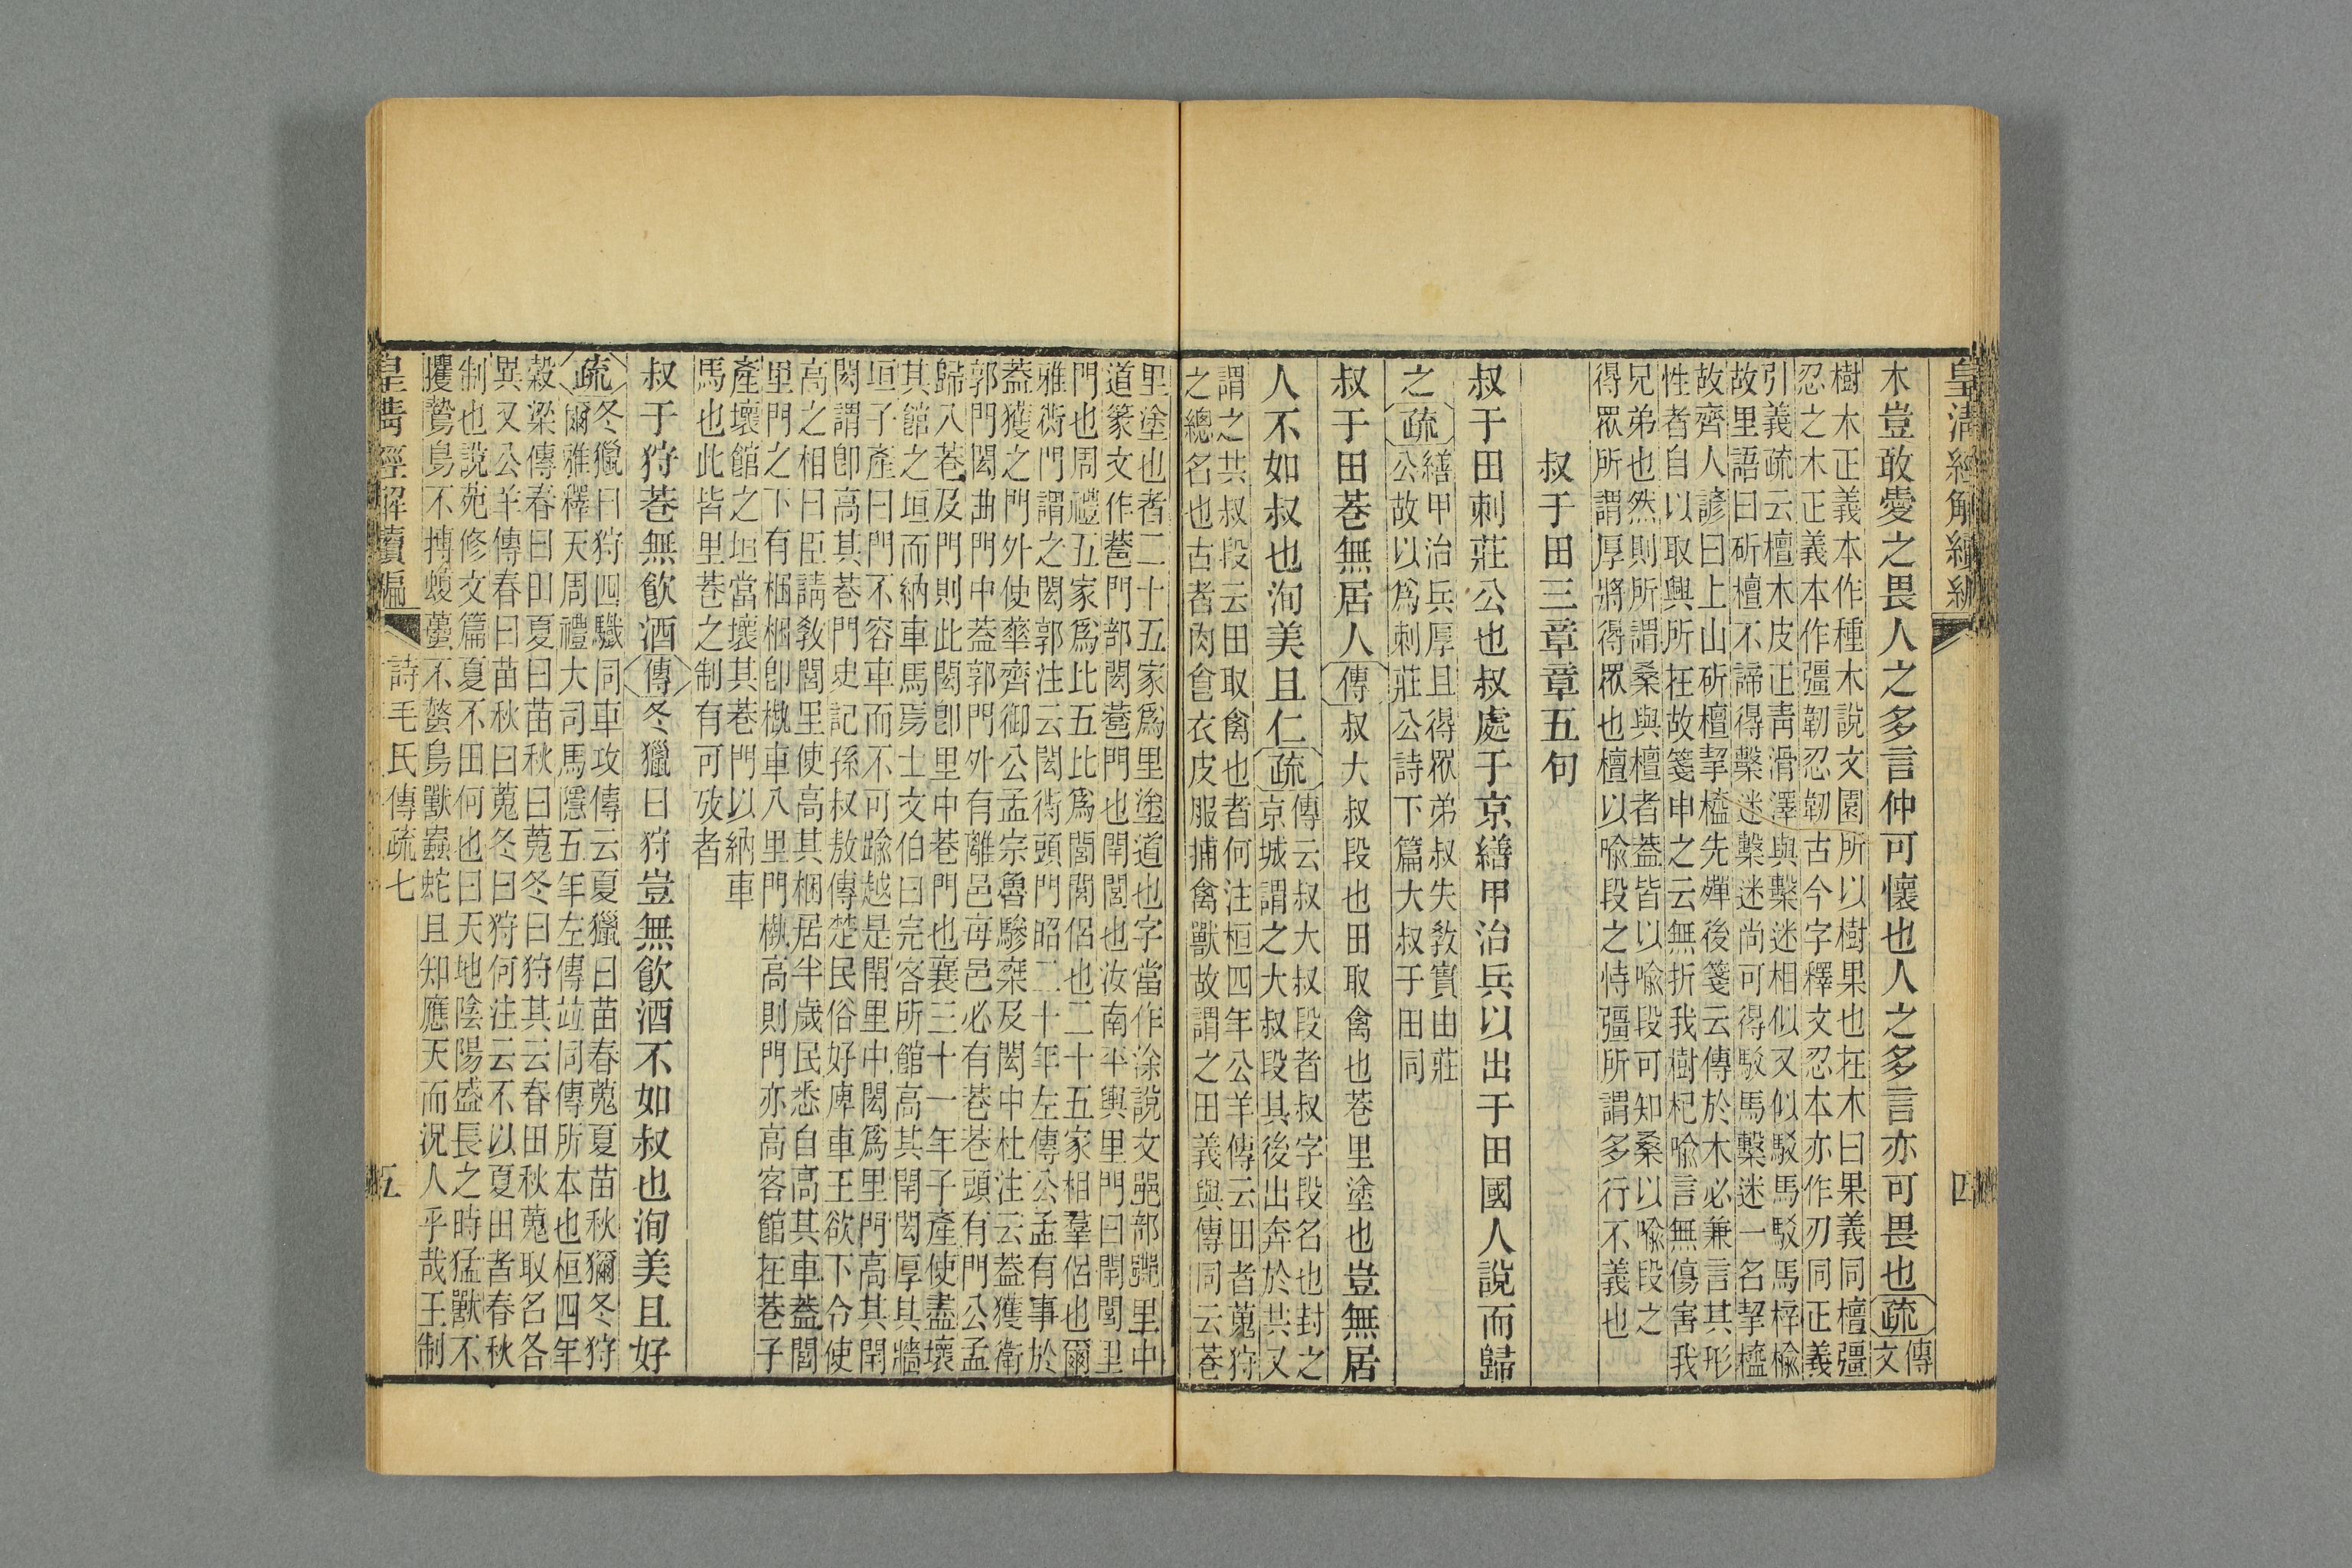 皇清經解續編
四
木豈敢愛之畏人之多言仲可懷也人之多言亦可畏也疏
傳
文
樹木正義本作種木說文園所以樹果也在木曰果義同檀彊
忍之木正義本作彊韌忍韌古今字釋文忍本亦作刃同正義
引義疏云檀木皮正靑滑澤與檕迷相似又似駁馬駁馬梓榆
故里語曰斫檀不諦得檕迷檕迷尚可得駁馬檕迷一名挈橀
故齊人諺曰上山斫檀挈橀先殫後箋云傳於木必兼言其形
性者自以取興所在故箋申之云無折我樹杞喻言無傷害我
兄弟也然則所謂桑與檀者蓋皆以喻段可知桑以喻段之
得眾所謂厚將得眾也檀以喻段之恃彊所謂多行不義也
叔于田三章章五句
叔于田刺莊公也叔處于京繕甲治兵以出于田國人說而歸
之疏
繕甲治兵厚且得眾弟叔失敎實由莊
公故以爲刺莊公詩下篇大叔于田同
叔于田巷無居人傳叔大叔段也田取禽也巷里塗也豈無居
人不如叔也洵美且仁疏
傳云叔大叔段者叔字段名也封之
京城謂之大叔段其後出奔於共又
謂之共叔段云田取禽也者何注桓四年公羊傳云田者蒐狩
之總名也古者肉食衣皮服捕禽獸故謂之田義與傳同云巷
里塗也者二十五家爲里塗道也字當作涂說文𨛜部𨞠里中
道篆文作巷門部閎巷門也閈閭也汝南平輿里門曰閈閭里
門也周禮五家爲比五比爲閭閭侶也二十五家相羣侶也爾
雅衖門謂之閎郭注云閎衖頭門昭二十年左傳公孟有事於
蓋獲之門外使華齊御公孟宗魯驂乘及閎中杜注云蓋獲衞
郭門閎曲門中蓋郭門外有離邑每邑必有巷巷頭有門公孟
歸入巷及門則此閎卽里中巷門也襄三十一年子產使盡壞
其館之垣而納車馬焉士文伯曰完客所館高其閈閎厚其牆
垣子產曰門不容車而不可踰越是閈里中閎爲里門高其閈
閎謂卽高其巷門史記孫叔敖傳楚民俗好庳車王欲下令使
高之相曰臣請敎閭里使高其梱居半歲民悉自高其車蓋閭
里門之下有梱梱卽橛車入里門橛高則門亦高客館在巷子
產壞館之垣當壞其巷門以納車
馬也此皆里巷之制有可攷者
叔于狩巷無飮酒傳冬獵曰狩豈無飮酒不如叔也洵美且好
疏
冬獵曰狩四驖同車攻傳云夏獵曰苗春蒐夏苗秋獮冬狩
爾雅釋天周禮大司馬隱五年左傳竝同傳所本也桓四年
穀梁傳春曰田夏曰苗秋曰蒐冬曰狩其云春田秋蒐取名各
異又公羊傳春曰苗秋曰蒐冬曰狩何注云不以夏田者春秋
制也說苑修文篇夏不田何也曰天地陰陽盛長之時猛獸不
攫鷙鳥不搏蝮蠆不螫鳥獸蟲蛇且知應天而況人乎哉王制
皇淸經解續編
詩毛氏傳疏七
五